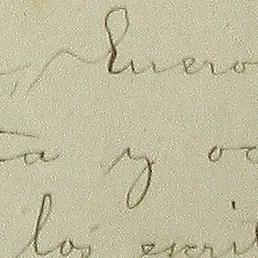 Enero
a y oc
los escrit